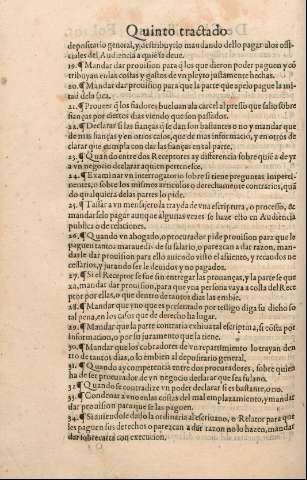 Quinto tractado
depositario general, y distribuyrlo mandando dello pagar a los ofi-
ciales del Audiencia a quiē se deue.
19. ¶ Mandar dar prouision para q̄ los que dieron poder paguen y cō
tribuyan en las costas y gastos de vn pleyto justamente hechas.
20. ¶ Mandar dar prouision para que la parte que apelo pague la mi
tad dela saca.
21. ¶ Proueer q̄ los fiadores bueluan ala carcel al presso que salio sobre
fianças por ciertos dias viendo que son passados.
22. ¶ Declarar si las fianças q̄ se dan son bastantes o no y mandar que
de mas fianças y en otros casos, que de mas informacion, y en otros de
clarar que cumpla con dar las fianças en tal parte.
23. ¶ Quando entre dos Receptores ay diferencia sobre quiē a de yr
a vn negocio declarar aquien pertenesce.
24. ¶ Examinar vn interrogatorio sobre si tiene preguntas imperti-
nentes, o sobre los mismos articulos o derechamente contrarios, quā
do qualquiera delas partes lo pide.
25. ¶ Tassar a vn mensajero la trayda de vna escriptura, o processo, &
mandarselo pagar aunque algunas veces se haze esto en Audiencia
publica o de relaciones.
26. ¶ Quando vn abogado, o procurador pide prouision para que le
paguen tantos marauedis de su salario, o parezcan a dar razon, man-
darle dar prouision para ello auiendo visto el assiento, y recaudos ne
cessarios, y jurando ser le deuidos y no pagados.
27. ¶ Si el Receptor se fue sin entregar las prouanças, y la parte se que
xa, mandar dar prouision, para que vna persona vaya a costa del Rece
ptor por ellas, o que dentro de tantos dias las embie.
28. ¶ Mandar que vno que es presentado por testigo diga su dicho so
tal pena, en los casos que de derecho ha lugar.
29. ¶ Mandar que la parte contraria exhiua tal escriptura, si costa por
informacion, o por su juramento que la tiene.
30. ¶ Mandar que los cobradores de vn repartimiento lo trayan den
tro de tantos dias, o lo embien al depositario general.
31. ¶ Quando ay competencia entre dos procuradores, sobre quien
ha de ser procurador de vn negocio declarar que sea fulano.
32. ¶ Quando se contradize vn poder declarar si es bastante, o no.
33. ¶ Condenar a vno en las costas del mal emplazamiento, y mandar
dar prouision para que se las paguen.
34. ¶ Si auiendose dado la ordinaria al escriuano, o Relator para que
les paguen sus derechos o parezcan a dar razon no lo hazen, mandar
dar sobrecarta con execucion.